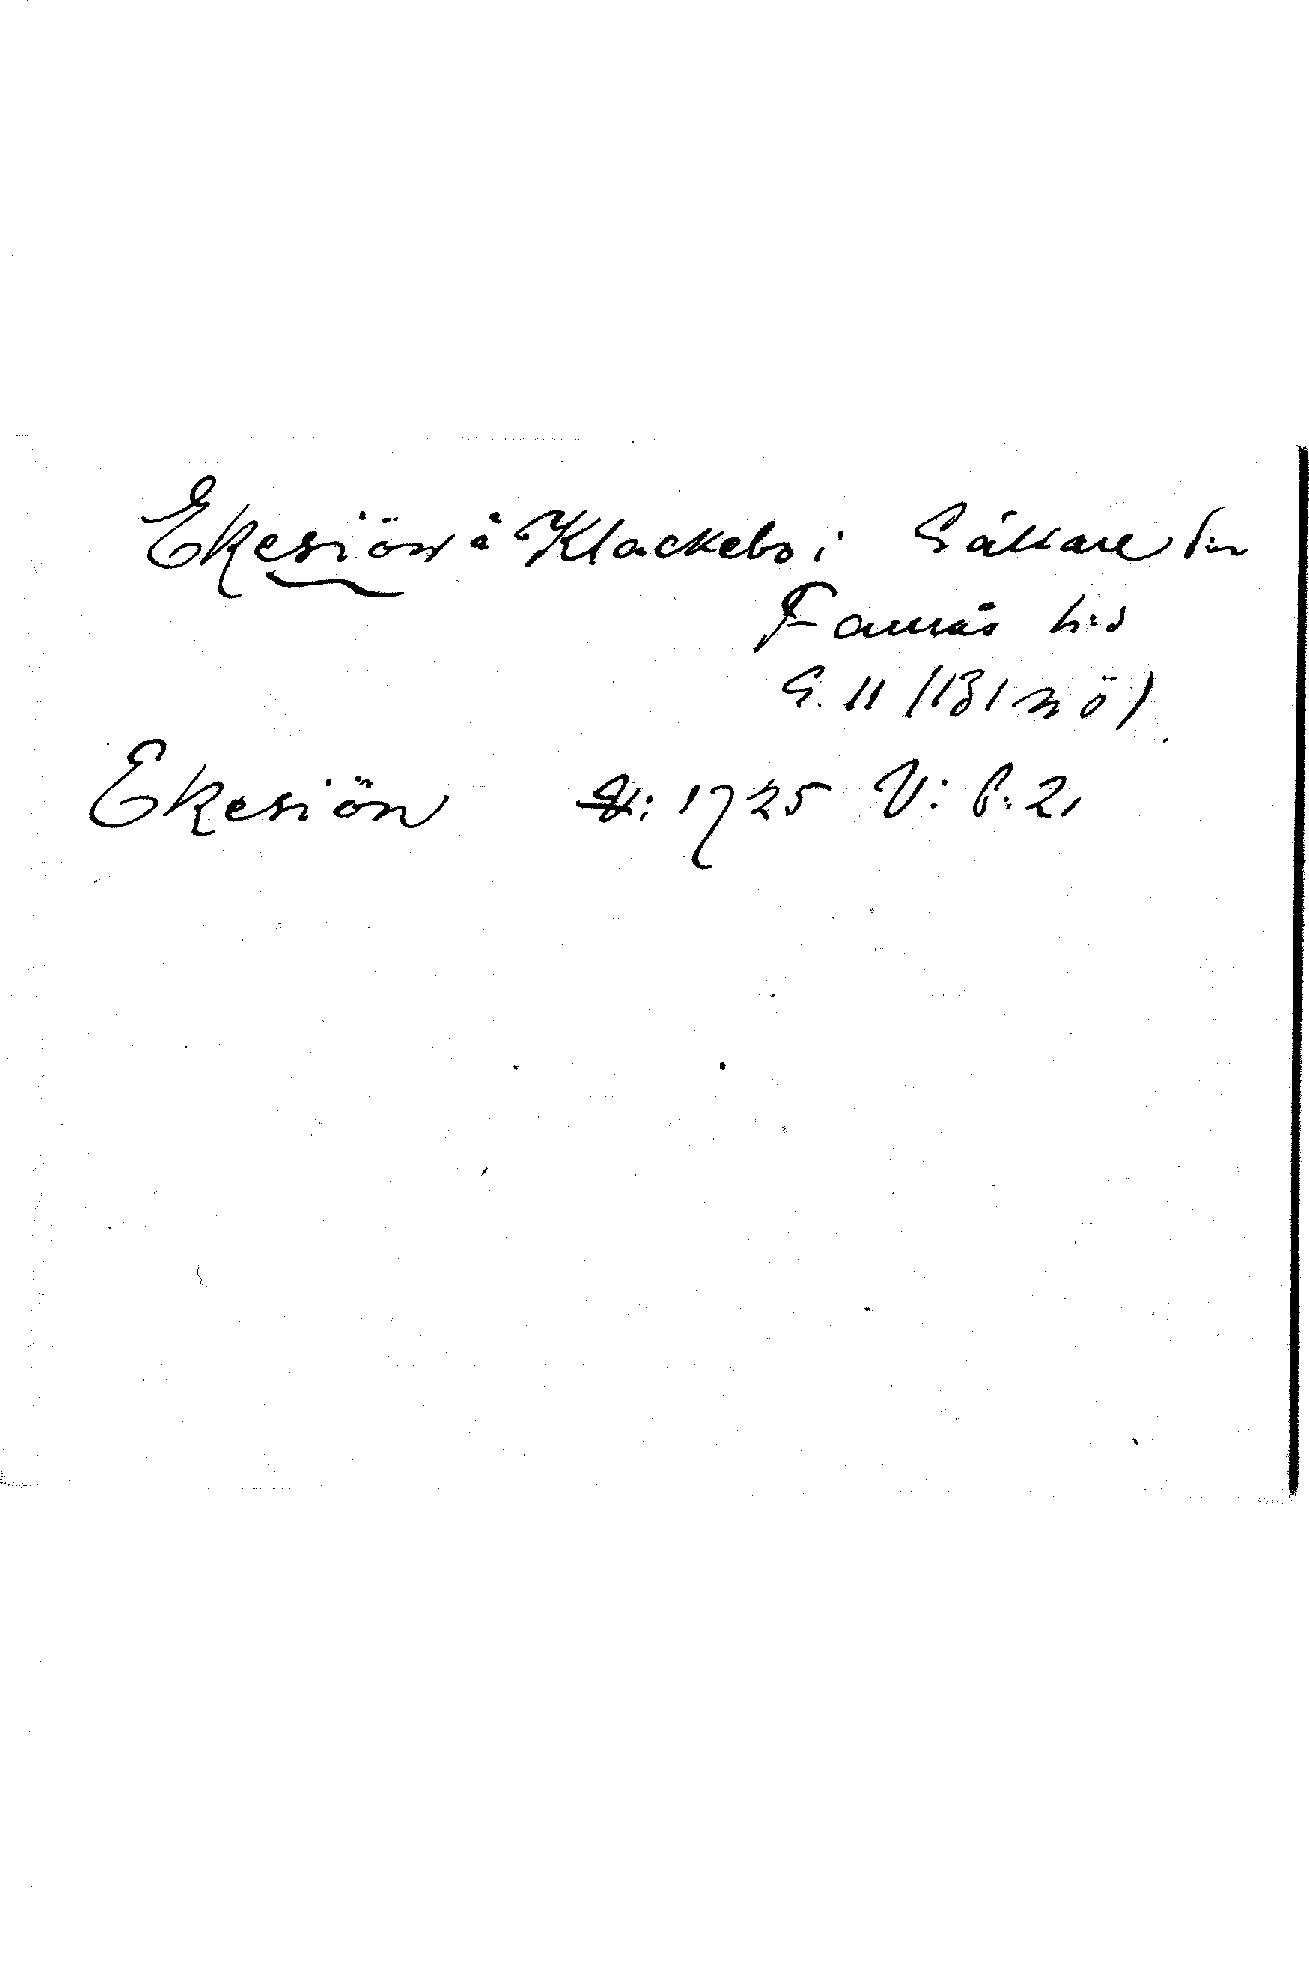 Ekesiön å Klackebo i Gällared sn
Faurås hd
G. 11 (1/31 n ö).
Ekesiön 1725 V: 6: 21